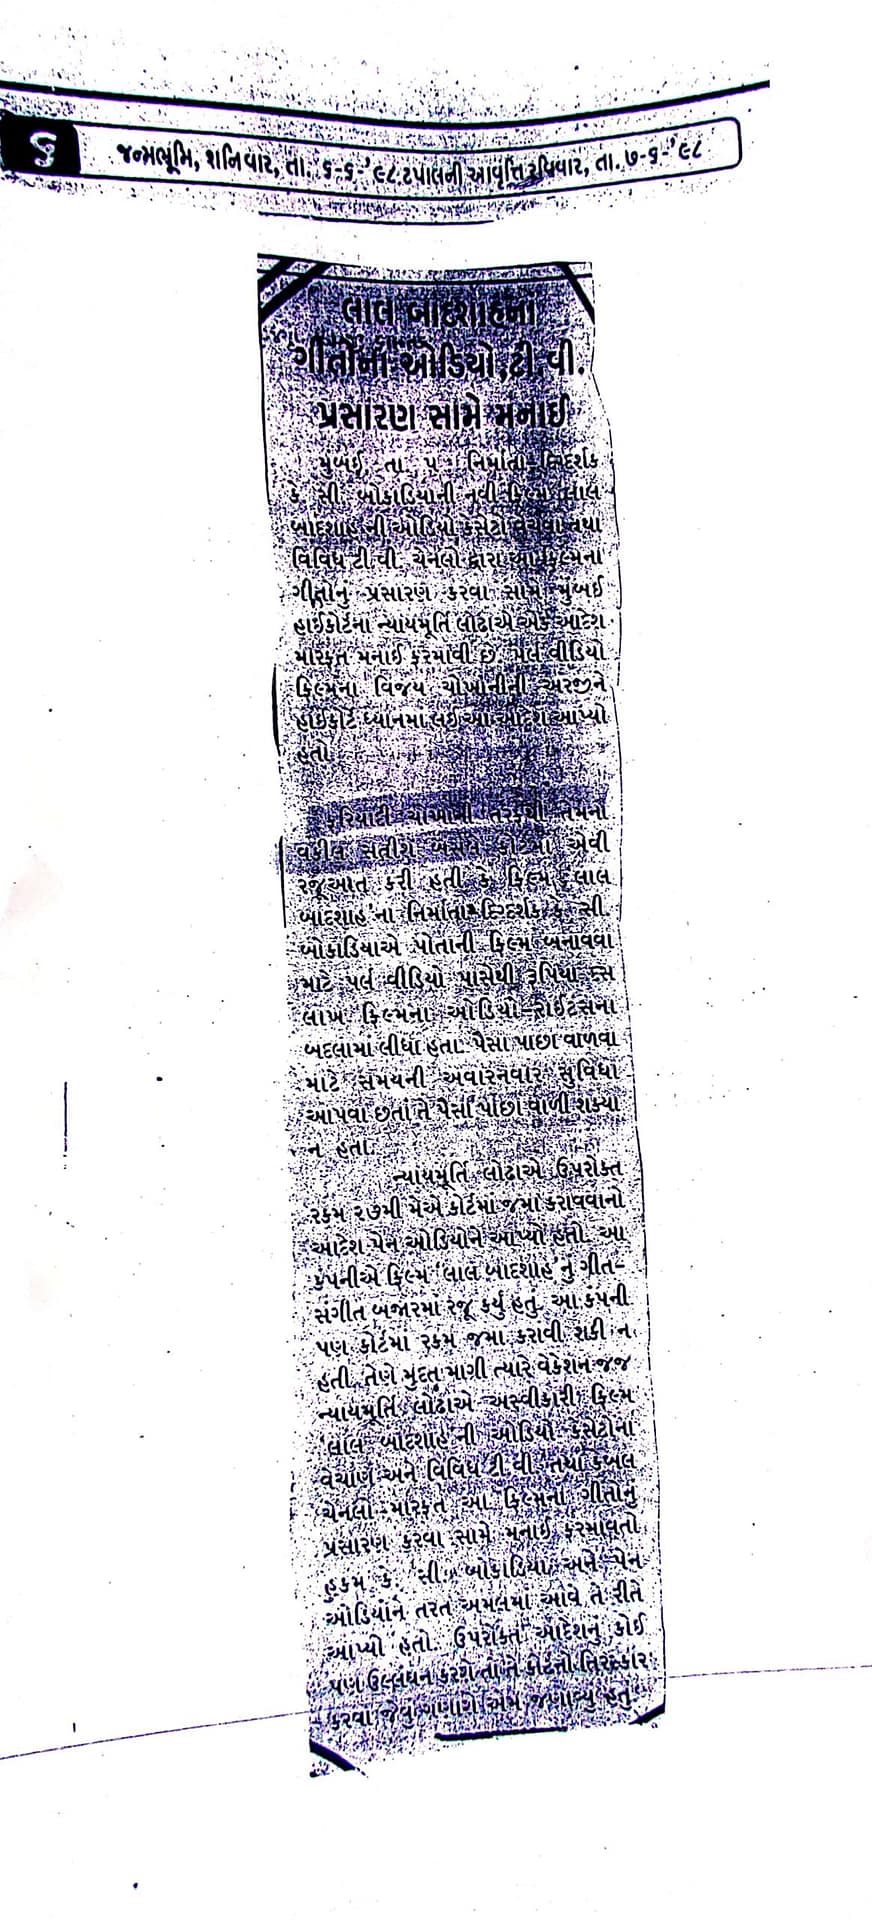 ૬
જન્મભૂમિ, શનિવાર, તા. ૬-૬-'૯૮ ટપાલની આવૃત્તિ રવિવાર, તા. ૭-૬-'૯૮
લાલ બાદશાહના
ગીતોના ઓડિયો, ટી.વી.
પ્રસારણ સામે મનાઈ
મુંબઈ, તા. ૫ : નિર્માતા-દિગ્દર્શક
કે. સી. બોકાડિયાની નવી ફિલ્મ 'લાલ
બાદશાહ'ની ઓડિયો કેસેટો વેચવા તથા
વિવિધ ટી.વી. ચેનલો દ્વારા આ ફિલ્મના
ગીતોનુ પ્રસારણ કરવા સામે મુંબઈ
હાઈકોર્ટના ન્યાયમૂર્તિ લોઢાએ એક આદેશ
મારફત મનાઈ ફરમાવી છે. પર્લ વીડિયો
ફિલ્મના વિજય ચોખાનીની અરજીને
હાઈકોર્ટે ધ્યાનમાં લઈ આ આદેશ આપ્યો
હતો.
ફરિયાદી તરફથી તેમના
વકીલ સતીશ કોર્ટમાં એવી
રજૂઆત કરી હતી કે ફિલ્મ 'લાલ
બાદશાહ'ના નિર્માતા-દિગ્દર્શક કે. સી.
બોકાડિયાએ પોતાની ફિલ્મ બનાવવા
માટે પર્લ વીડિયો પાસેથી રૂપિયા
લાખ ફિલ્મના ઓડિયો રાઈટસના
બદલામાં લીધા હતા. પૈસા પાછા વાળવા
માટે સમયની અવારનવાર સુવિધા
આપવા છતાં તે પૈસા પાછા વાળી શક્યા
ન હતા.
ન્યાયમૂર્તિ લોઢાએ ઉપરોક્ત
રકમ ૨૭મી મેએ કોર્ટમાં જમા કરાવવાનો
આદેશ પેન ઓડિયોને આપ્યો હતો. આ
કંપનીએ ફિલ્મ 'લાલ બાદશાહ'નુ ગીત-
સંગીત બજારમાં રજૂ કર્યુ હતુ. આ કંપની
પણ કોર્ટમા રકમ જમા કરાવી શકી ન
હતી. તેણે મુદત માગી ત્યારે વેકેશન જજ
ન્યાયમૂર્તિ લોઢાએ અસ્વીકારી ફિલ્મ
'લાલ બાદશાહ'ની ઓડિયો કેસેટોના
વેચાણ અને વિવિધ ટી.વી. તથા કેબલ
ચેનલો મારફત આ ફિલ્મના ગીતોનુ
પ્રસારણ કરવા સામે મનાઈ ફરમાવતો
હુકમ કે. સી. બોકાડિયા અને પેન
ઓડિયોને તરત અમલમાં આવે તે રીતે
આપ્યો હતો. ઉપરોક્ત આદેશનુ કોઈ
પણ ઉલ્લંઘન કરશે તો તે કોર્ટનો તિરસ્કાર
કરવા જેવુ ગણાશે એમ જણાવ્યુ હતુ.